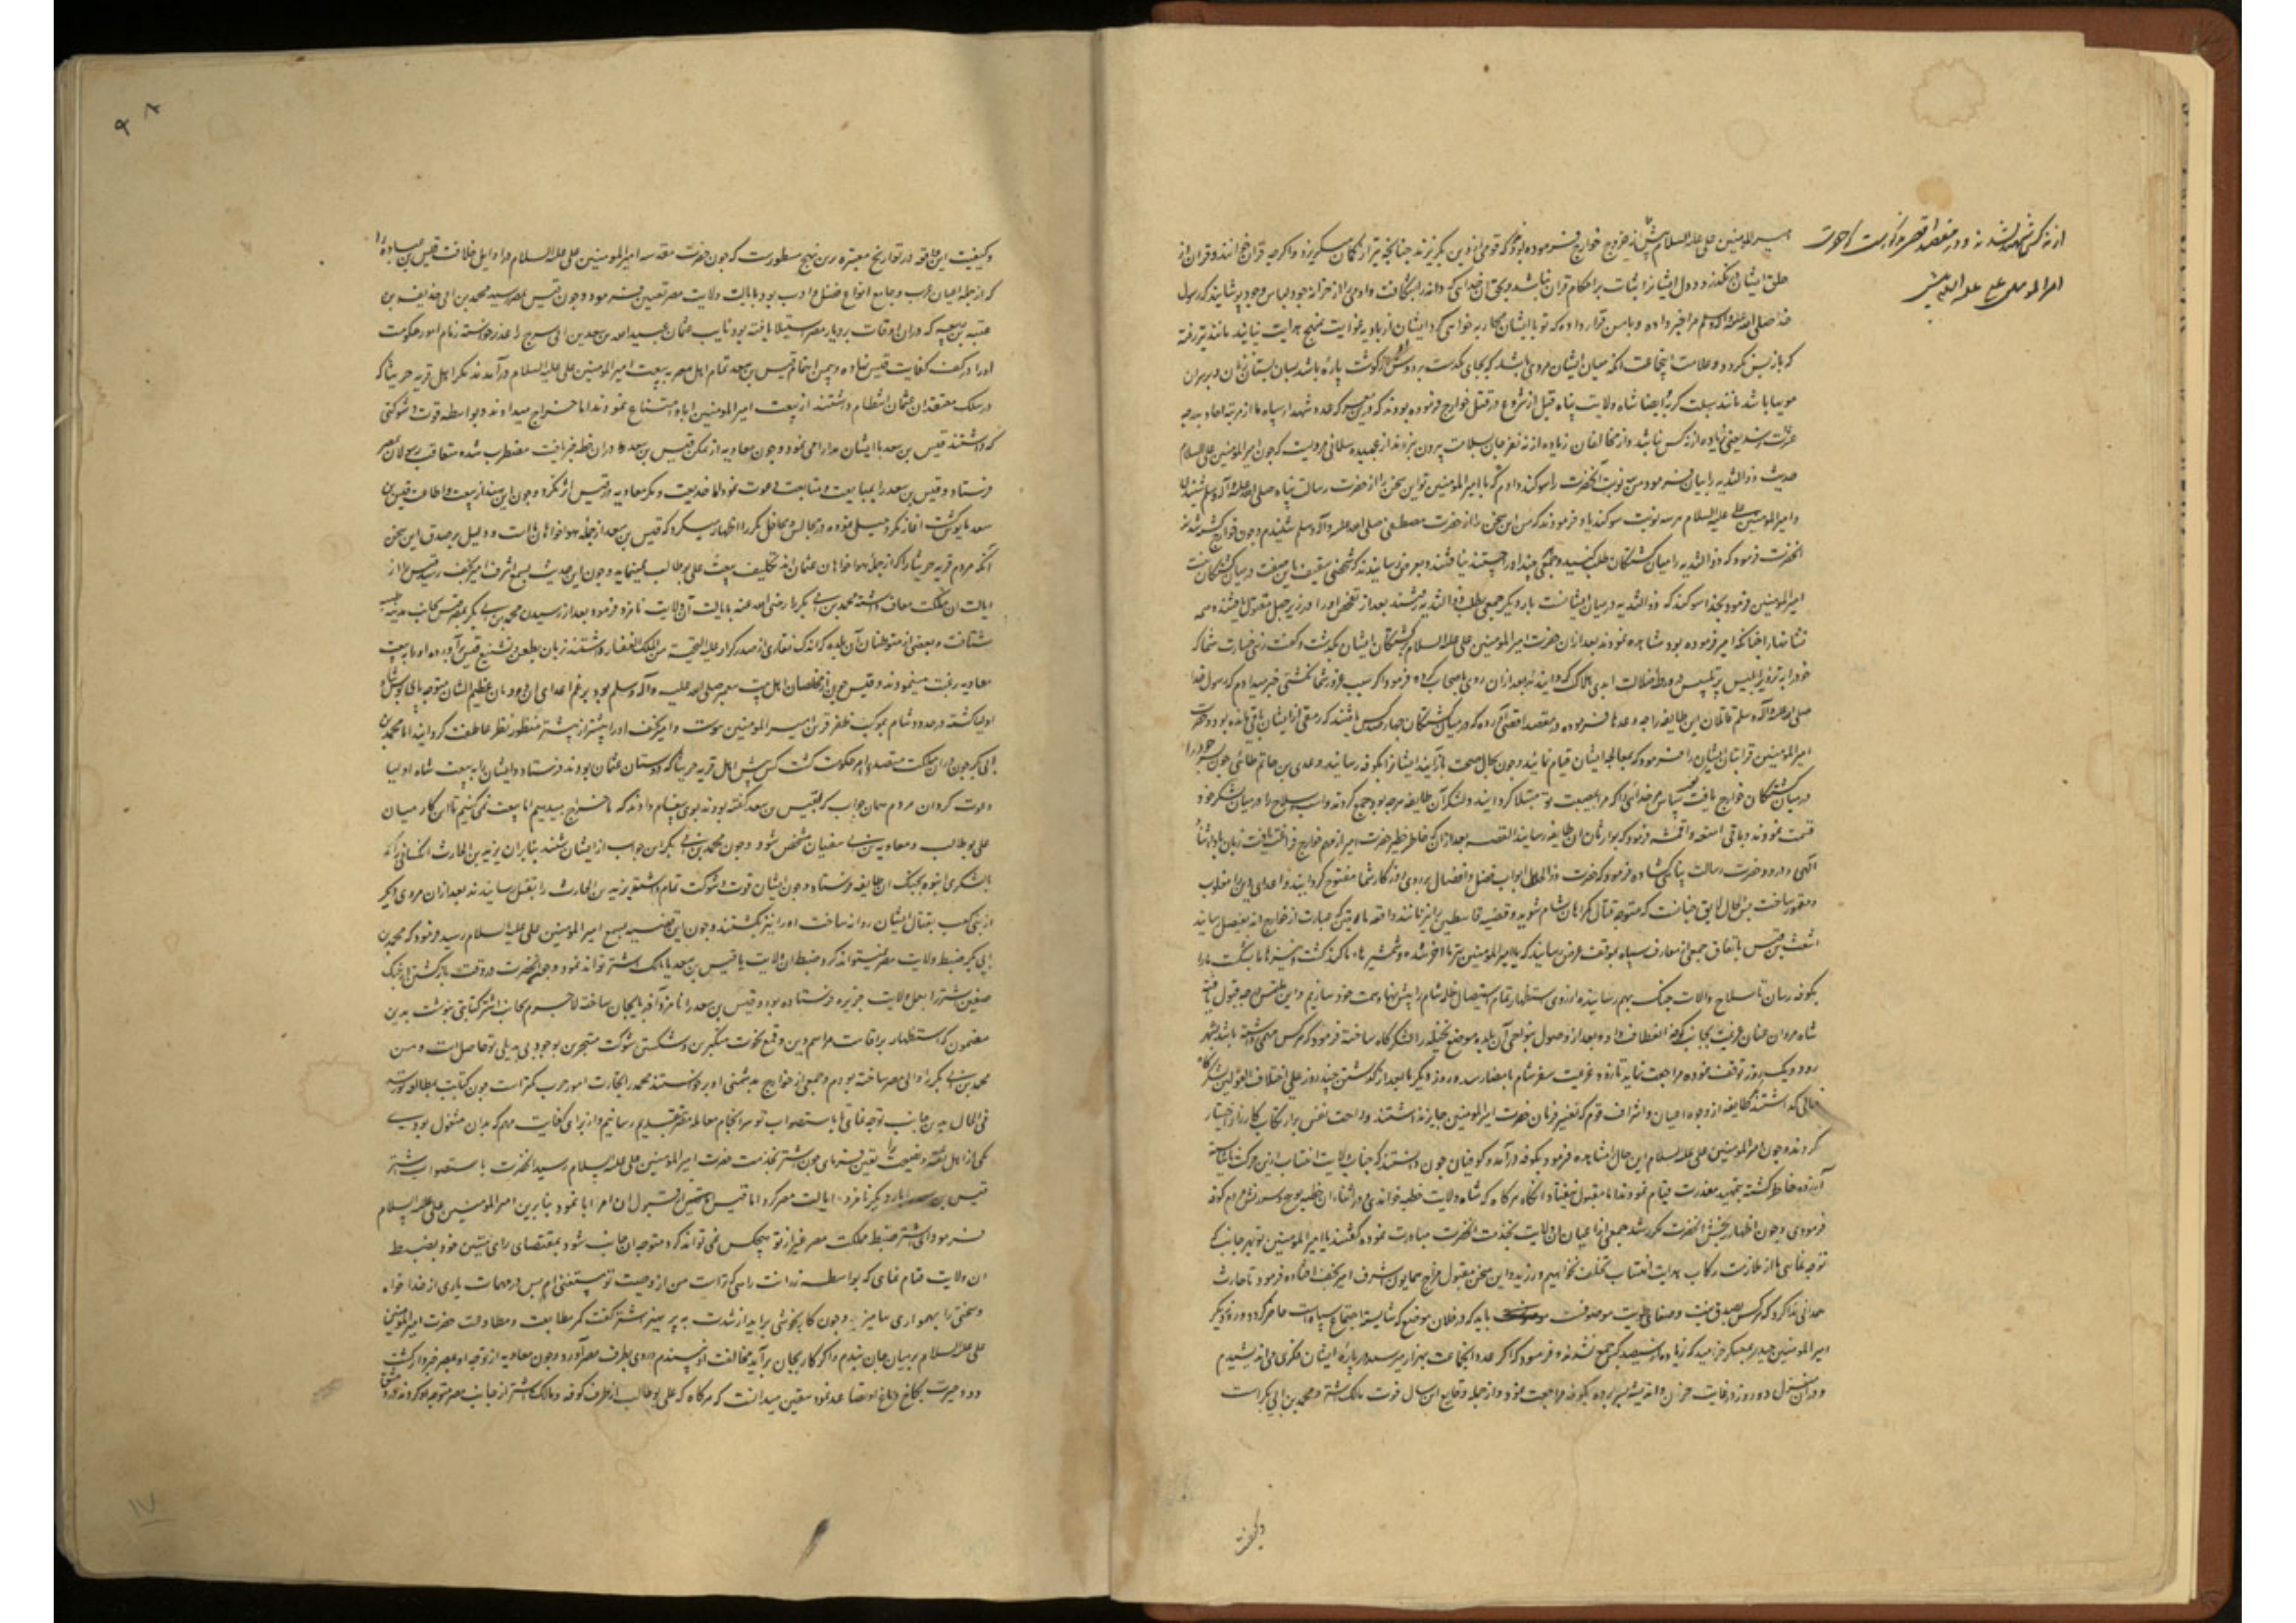 امیرالمومنین علی علیه السلام پیش از خروج خوارج فرموده بود که قومی از دین بگریزند چنانچه تیر از کمان میگریزد و اگرچه قران خوانند و قران از
حلق ایشان نگذرد و دل ایشان را ثبات بر احکام قران نباشد و بحق آن خدائی که دانه را بشکافت و ادمی را از خزانه جود لباس وجود پوشانید که رسول
خدا صلی الله علیه وآله وسلم مرا خبر داده و با من قرار داده که تو با ایشان محاربه خواهی کرد ایشان از بادیه غوایت بمنهج هدایت نیایند مانند تیر رفته
که باز پس نگردد و علامت انجماعت انکه میان ایشان مردی باشد که بجای یکدست بر دوش او گوشت پاره باشد بسان پستان زنان و بر سر ان
مویها باشد مانند سبلت گربه ایضا شاه ولایت پناه قبل از شروع در قتل خوارج فرموده بودند که درین معرکه عدد شهداء سپاه ما از مرتبه احاد بدرجه
عشرات نرسد یعنی زیاده از نه کس نباشد و از مخالفان زیاده از نه نفر جان بسلامت بیرون نبرند از عبیده سلمانی مرویست که چون امیرالمومنین علی علیه السلام
حدیث ذوالثدیه را بیان فرمود من سه نوبت آنحضرت را سوکند دادم که یا امیرالمومنین تو این سخن را از حضرت رسالت پناه صلی الله علیه وآله وسلم شنیدی
وامیرالمومنین علی علیه السلام هر سه نوبت سوکند یاد فرمودند که من این سخن را از حضرت مصطفی صلی الله علیه وآله وسلم شنیدم و چون خوارج کشته شدند
انحضرت فرمود که ذوالثدیه را میان کشتگان طلب کنید و جمعی چندانکه جستند نیافتند و بعرض رسانیدند که شخصی باین صفت در میان کشتگان نیست
امیرالمومنین فرمود بخدا سوکند که ذوالثدیه در میان ایشانست بار دیگر جمعی بطلب ذوالثدیه رفتند بعد از تفحص او را در زیر چهل مقتول یافتند و همه
نشانها را چنانکه امیر فرموده بود مشاهده نمودند بعد از ان حضرت امیرالمومنین علی علیه السلام بر کشتگان ایشان بگذشت و گفت زهی خسارت شما که
خود را بتزویر ابلیس پر تلبیس در ورطه ضلالت ابدی هلاک گردانیدند بعد از ان روی باصحاب کرده فرمود اگر سبب غرور شما نگشتی خبر میدادم که رسول خدا
صلی الله علیه وآله وسلم قاتلان این طایفه را چه وعدها فرموده در مقصد اقصی آورده که در میان کشتگان چهارصد کس یافتند که رمقی از ایشان باقی مانده بود و حضرت
امیرالمومنین قرابتان ایشان را فرمود که بمعالجه ایشان قیام نمائید و چون بحال صحت بازآیند ایشان را بکوفه رسانید و عدی بن حاتم طائی چون پسر خود را
در میان کشتگان خوارج یافت گفت سپاس مر خدائی را که مرا بمصیبت تو مبتلا گردانید و لشکر آن طایفه هرچه بود جمع کردند و اسب و سلاح را در میان لشکر خود
قسمت نمودند و باقی امتعه و اقمشه فرمود که بوارثان ان طایفه رسانید القصه بعد از ان که خاطر خطیر حضرت امیر از مهم خوارج فراغت یافت زبان باداء ثنا
الهی و درود حضرت رسالت پناهی گشاده فرمود که حضرت ذوالجلال ابواب فضل و افضال بر روی روزگار شما مفتوح گردانید و اعدای دین را مغلوب
و مقهور ساخت مناسب حال لایق چنانست که متوجه قتال گمراهان شام شوید
اشعث بن قیس باتفاق جمعی از معارف سپاه بموقف عرض رسانید که یا امیرالمومنین تیرها اخر شده و شمشیرها ما کند گشت و نیزها ما بشکست ما را
بکوفه رسان تا سلاح و الات جنگ بهم رسانیده از روی استظهار تمام استیصال ظلمه شام را پیش نهاد همت خود سازیم و این ملتمس درجه قبول یافته
شاه مردان عنان عزیمت بجانب کوفه انعطاف داده بعد از وصول بنواحی آن بلده موضع نخیله را لشکرگاه ساخته فرمود که هر کس مهمی داشته باشد بشهر
رود و یک روز توقف نموده مراجعت نماید تا زود عزیمت سفر شام بامضا رسد و روز دیگر یا بعد از گذشتن چند روز علی اختلاف القولین لشکرگاه
خالی گذاشتند طایفه از وجوه اعیان و اشراف قوم که تغییر فرمان حضرت امیرالمومنین جایز نداشتند و راحت نفس بر ارتکاب کارزار اختیار
کردند و چون امیرالمومنین علی علیه السلام این حال مشاهده فرمود بکوفه درآمد و کوفیان چون دانستند که جناب ولایت انتساب ازین حرکت ناشایسته
آزرده خاطر گشته بتمهید معذرت قیام نمودند اما مقبول نیفتاد و انگاه هرگاه که شاه ولایت خطبه خواندی در اثناء ان خطبه بتوبیخ و سرزنش مردم کوفه
فرمودی و چون اظهار رنجش انحضرت مکرر شد جمعی از اعیان ان ولایت بخدمت انحضرت مبادرت نموده گفتند یا امیرالمومنین بهر جانب که
توجه نمائی ما از ملازمت رکاب هدایت انتساب تخلف نخواهیم ورزید و این سخن مقبول مزاج همایون اشرف امیر نجف افتاده فرمود تا حارث
همدانی ندا کرد که هر کس بصدق نیت و صفای طویت موصوفست باید که در فلان موضع که شایسته اجتماع سپاه است حاضر گردد و روز دیگر
امیرالمومنین حیدر بمعسکر خرامید که زیاده از سیصد کس جمع نشدند و فرمود که اگر عدد انجماعت بهزار میرسید درباره ایشان فکری می اندیشیدم
و در ان منزل دو روز در غایت حزن و اندیشه بسر برده بکوفه مراجعت نمود و از جمله وقایع این سال فوت مالک اشتر و محمد بن ابی بکر است
از نه کس شهید نشدند و در مقصد اقصی مذکورست که حضرت
امیرالمومنین علی علیه السلام پیش
وکیفیت
وکیفیت این واقعه در تواریخ معتبره برین نهج مسطورست که چون حضرت مقدسه امیرالمومنین علی علیه السلام در اوایل خلافت قیس بن سعد بن عباده را
که از جمله اعیان عرب و جامع انواع فضل و ادب بود بایالت ولایت مصر تعیین فرمود و چون قیس بمصر رسید محمد بن ابی حذیفه بن
عتبه بن ربیعه که دران اوقات بر دیار مصر استیلا یافته بود نایب عثمان عبدالله بن سعد بن ابی سرح را عذر خواسته زمام امور حکومت
او را در کف کفایت قیس نهاده و بیمن اهتمام قیس بن سعد تمام اهل مصر به بیعت امیرالمومنین علی علیه السلام درآمدند مگر اهل قریه خربتا که
در سلک معتقدان عثمان انتظام داشتند از بیعت امیرالمومنین ابا و امتناع نمودند اما خراج میدادند و بواسطه قوت و شوکتی
که داشتند قیس بن سعد با ایشان مدارا می نمود و چون معاویه از تمکن قیس بن سعد دران خطه خبر یافت مضطرب شده متعاقب رسولان بمصر
فرستاد و قیس بن سعد را بمبایعت و متابعت دعوت نمود اما خدیعت و مکر معاویه در قیس اثر نکرد و چون ابن هند از بیعت و اطاعت قیس بن
سعد مایوس گشت اغاز مکر و حیلی نموده در مجالس و محافل مکرر اظهار میکرد که قیس بن سعد از جمله هواخواهان ماست و دلیل بر صدق این سخن
آنکه مردم قریه خربتا را که از جمله هواخواهان عثمان اند تکلیف بیعت علی بوطالب نمینماید و چون این حدیث بسمع اشرف امیر نجف رسید قیس را از
ایالت ان مملکت معاف داشته محمد بن ابی بکر را رضی الله عنه بایالت آن ولایت نامزد فرمود بعد از رسیدن محمد بن ابی بکر بمصر قیس بجانب مدینه
شتافت و بعضی از متوطنان آن بلده که اندک نقاری از صدر کرار علیه التحیة من الملک الغفار داشتند زبان بطعن و تشنیع قیس برآورده او را به بیعت
معاویه رغبت مینمودند و قیس چون از مخلصان اهل بیت پیغمبر صلی الله علیه وآله وسلم بود برغم اعدای ان دودمان عظیم الشان متوجه پایبوس شاه
اولیا گشته در حدود شام بموکب ظفر قرین امیرالمومنین پیوست و امیر نجف او را بیشتر از پیشتر منظور نظر عاطفت گردانید اما محمد بن
ابی بکر چون دران مملکت متصدی امر حکومت گشت کس پیش اهل قریه خربتا که دوستان عثمان بودند فرستاد و ایشان را به بیعت شاه اولیا
دعوت کرد ان مردم همان جواب که بقیس بن سعد گفته بودند بوی پیغام دادند که ما خراج میدهیم اما بیعت نمی کنیم تا ان کار میان
علی بوطالب و معاویه بن ابی سفیان مشخص شود و چون محمد بن ابی بکر این جواب از ایشان شنید بنابران یزید بن الحارث الکنانی را که
با لشکری انبوه بجنگ ان طایفه فرستاد و چون ایشان قوت و شوکت تمام داشتند یزید بن الحارث را بقتل رسانیدند بعد ازان مردی دیگر
از بنی کعب بقتال ایشان روانه ساخت او را نیز بکشتند و چون این قضیه بسمع امیرالمومنین علی علیه السلام رسید فرمود که محمد بن
ابی بکر ضبط ولایت مصر نمیتواند کرد ضبط ان ولایت یا قیس بن سعد یا مالک اشتر تواند نمود و چون انحضرت در وقت بازگشتن از جنگ
صفین اشتر را بعمل ولایت جزیره فرستاده بود و قیس بن سعد را نامزد آذربایجان ساخته لاجرم بجانب اشتر کتابتی نوشت بدین
مضمون که استظهار بر اقامت مراسم دین و قمع نخوت متکبرین و شکستن شوکت متجبرین بوجود بی بدیل تو حاصل است و من
محمد بن ابی بکر را والی مصر ساخته بودم و جمعی از خوارج بدشمنی او برخواستند محمد را بتجارت امور حرب کمتر است چون کتابت بمطالعه رسد
فی الحال بدین جانب توجه نمائی تا باستصواب تو سرانجام معامله مصر بتقدیم رسانیم و از برای کفایت مهم که بدان مشغول بودی
یکی از اهل ثقه و نصیحت را تعیین فرمای چون اشتر بخدمت حضرت امیرالمومنین علی علیه السلام رسید انحضرت باستصواب اشتر
قیس بن سعد را بار دیگر نامزد ایالت مصر کرد اما قیس از قبول ان امر ابا نمود بنابرین امیرالمومنین علی علیه السلام
فرمود ای اشتر ضبط مملکت مصر غیر از تو هیچکس نمی تواند کرد متوجه ان جانب شو و بمقتضای رای متین خود بضبط
ان ولایت قیام نمای که بواسطه رای که تراست من از وصیت تو مستغنی ام پس در مهمات یاری از خدا خواه
و سختی را بهمواری بیامیز و چون کار بخوشی برآید از شدت بپرهیز اشتر گفت کمر مطاوعت و مطاوعت حضرت امیرالمومنین
علی علیه السلام بر میان جان بندم و اگر کار بجان برآید مخالفت او نپسندم و روی بطرف مصر آورد و چون معاویه از توجه او بمصر خبردار گشت
دود حیرت بکاخ دماغ او تصاعد نمود بیقین میدانست که هرگاه که علی بوطالب از طرف کوفه و مالک اشتر از جانب مصر متوجه او گردند در دمشق